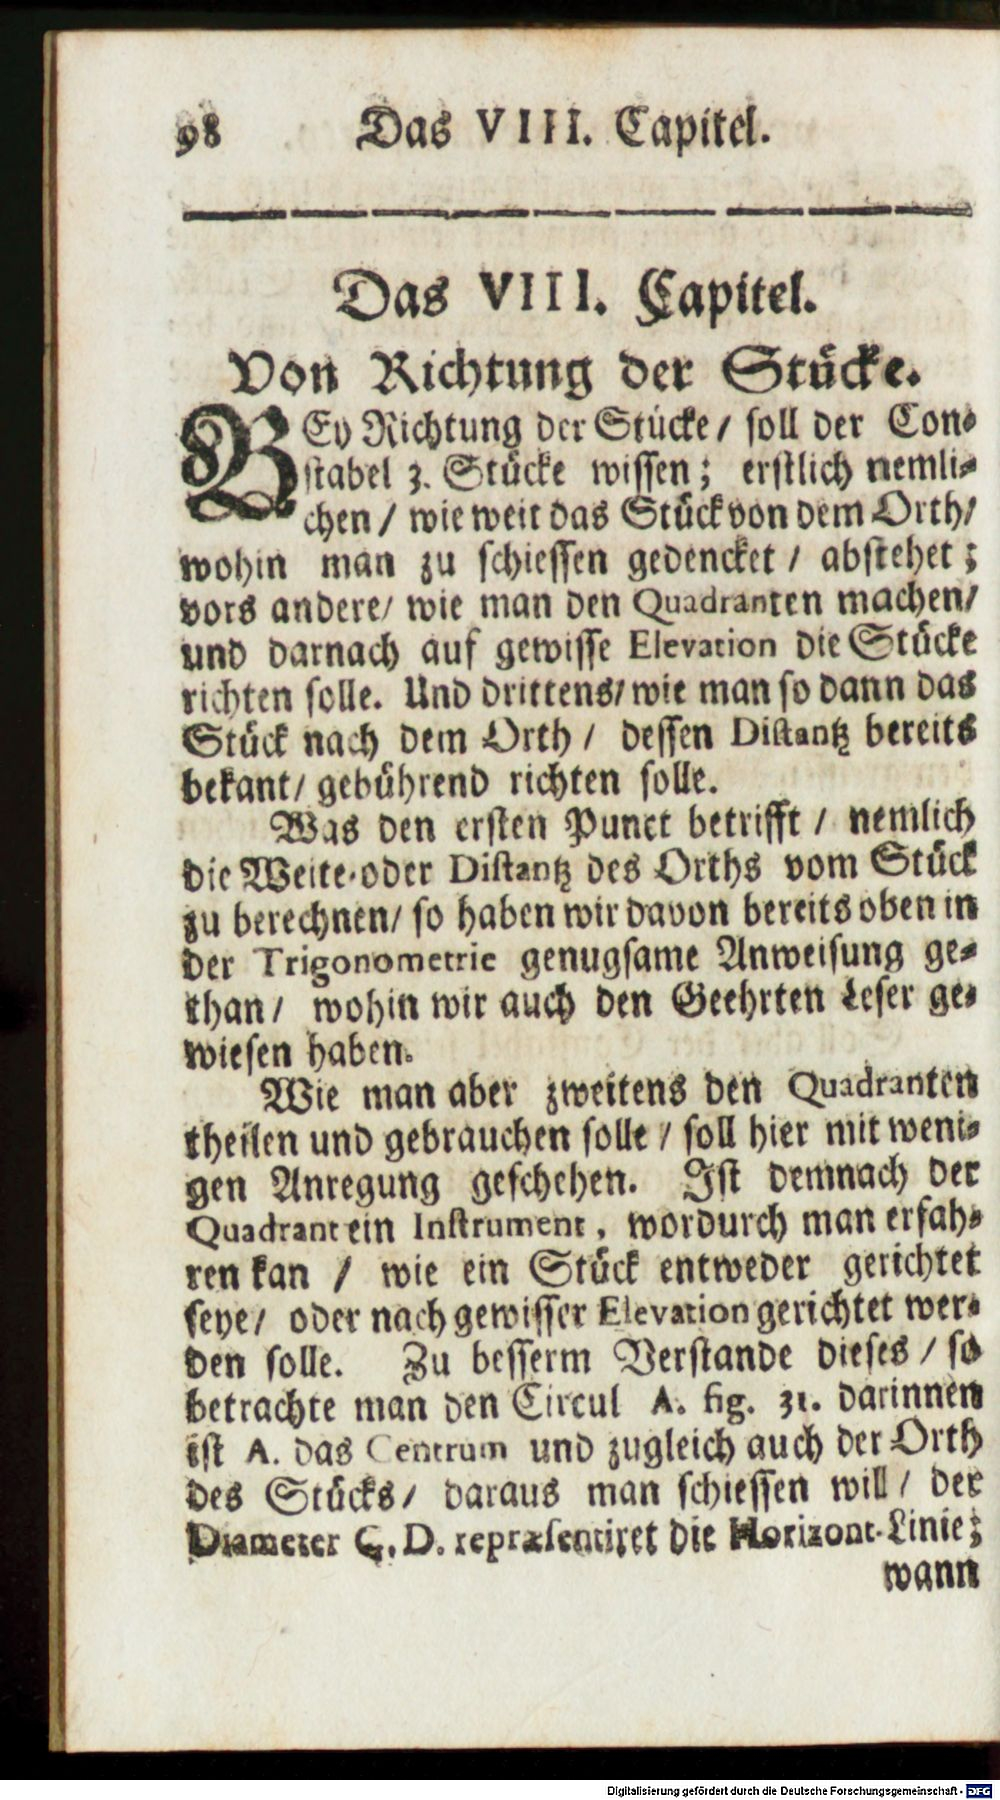 98 Das VIII. Capitel.
Das VIII. Capitel.
Von Richtung der Stücke.
BEy Richtung der Stücke / soll der Con-
stabel 3. Stücke wissen; erstlich nemli-
chen / wie weit das Stück von dem Orth /
wohin man zu schiessen gedencket / abstehet;
vors andere / wie man den Quadranten machen /
und darnach auf gewisse Elevation die Stücke
richten solle. Und drittens / wie man so dann das
Stück nach dem Orth / dessen Distantz bereits
bekant / gebührend richten solle.
Was den ersten Punct betrifft / nemlich
die Weite-oder Distantz des Orths vom Stück
zu berechnen / so haben wir davon bereits oben in
der Trigonometrie genugsame Anweisung ge-
than / wohin wir auch den Geehrten Leser ge-
wiesen haben.
Wie man aber zweitens den Quadranten
theilen und gebrauchen solle / soll hier mit weni-
gen Anregung geschehen. Ist demnach der
Quadrant ein Instrument, wordurch man erfah-
ren kan / wie ein Stück entweder gerichtet
seye / oder nach gewisser Elevation gerichtet wer-
den solle. Zu besserm Verstande dieses / so
betrachte man den Circul A. fig. 31. darinnen
ist A. das Centrum und zugleich auch der Orth
des Stücks / daraus man schiessen will / der
Diameter C. D. repræsentiret die Horizont-Linie;
wann
Digitalisierung gefördert durch die Deutsche Forschungsgemeinschaft - DFG